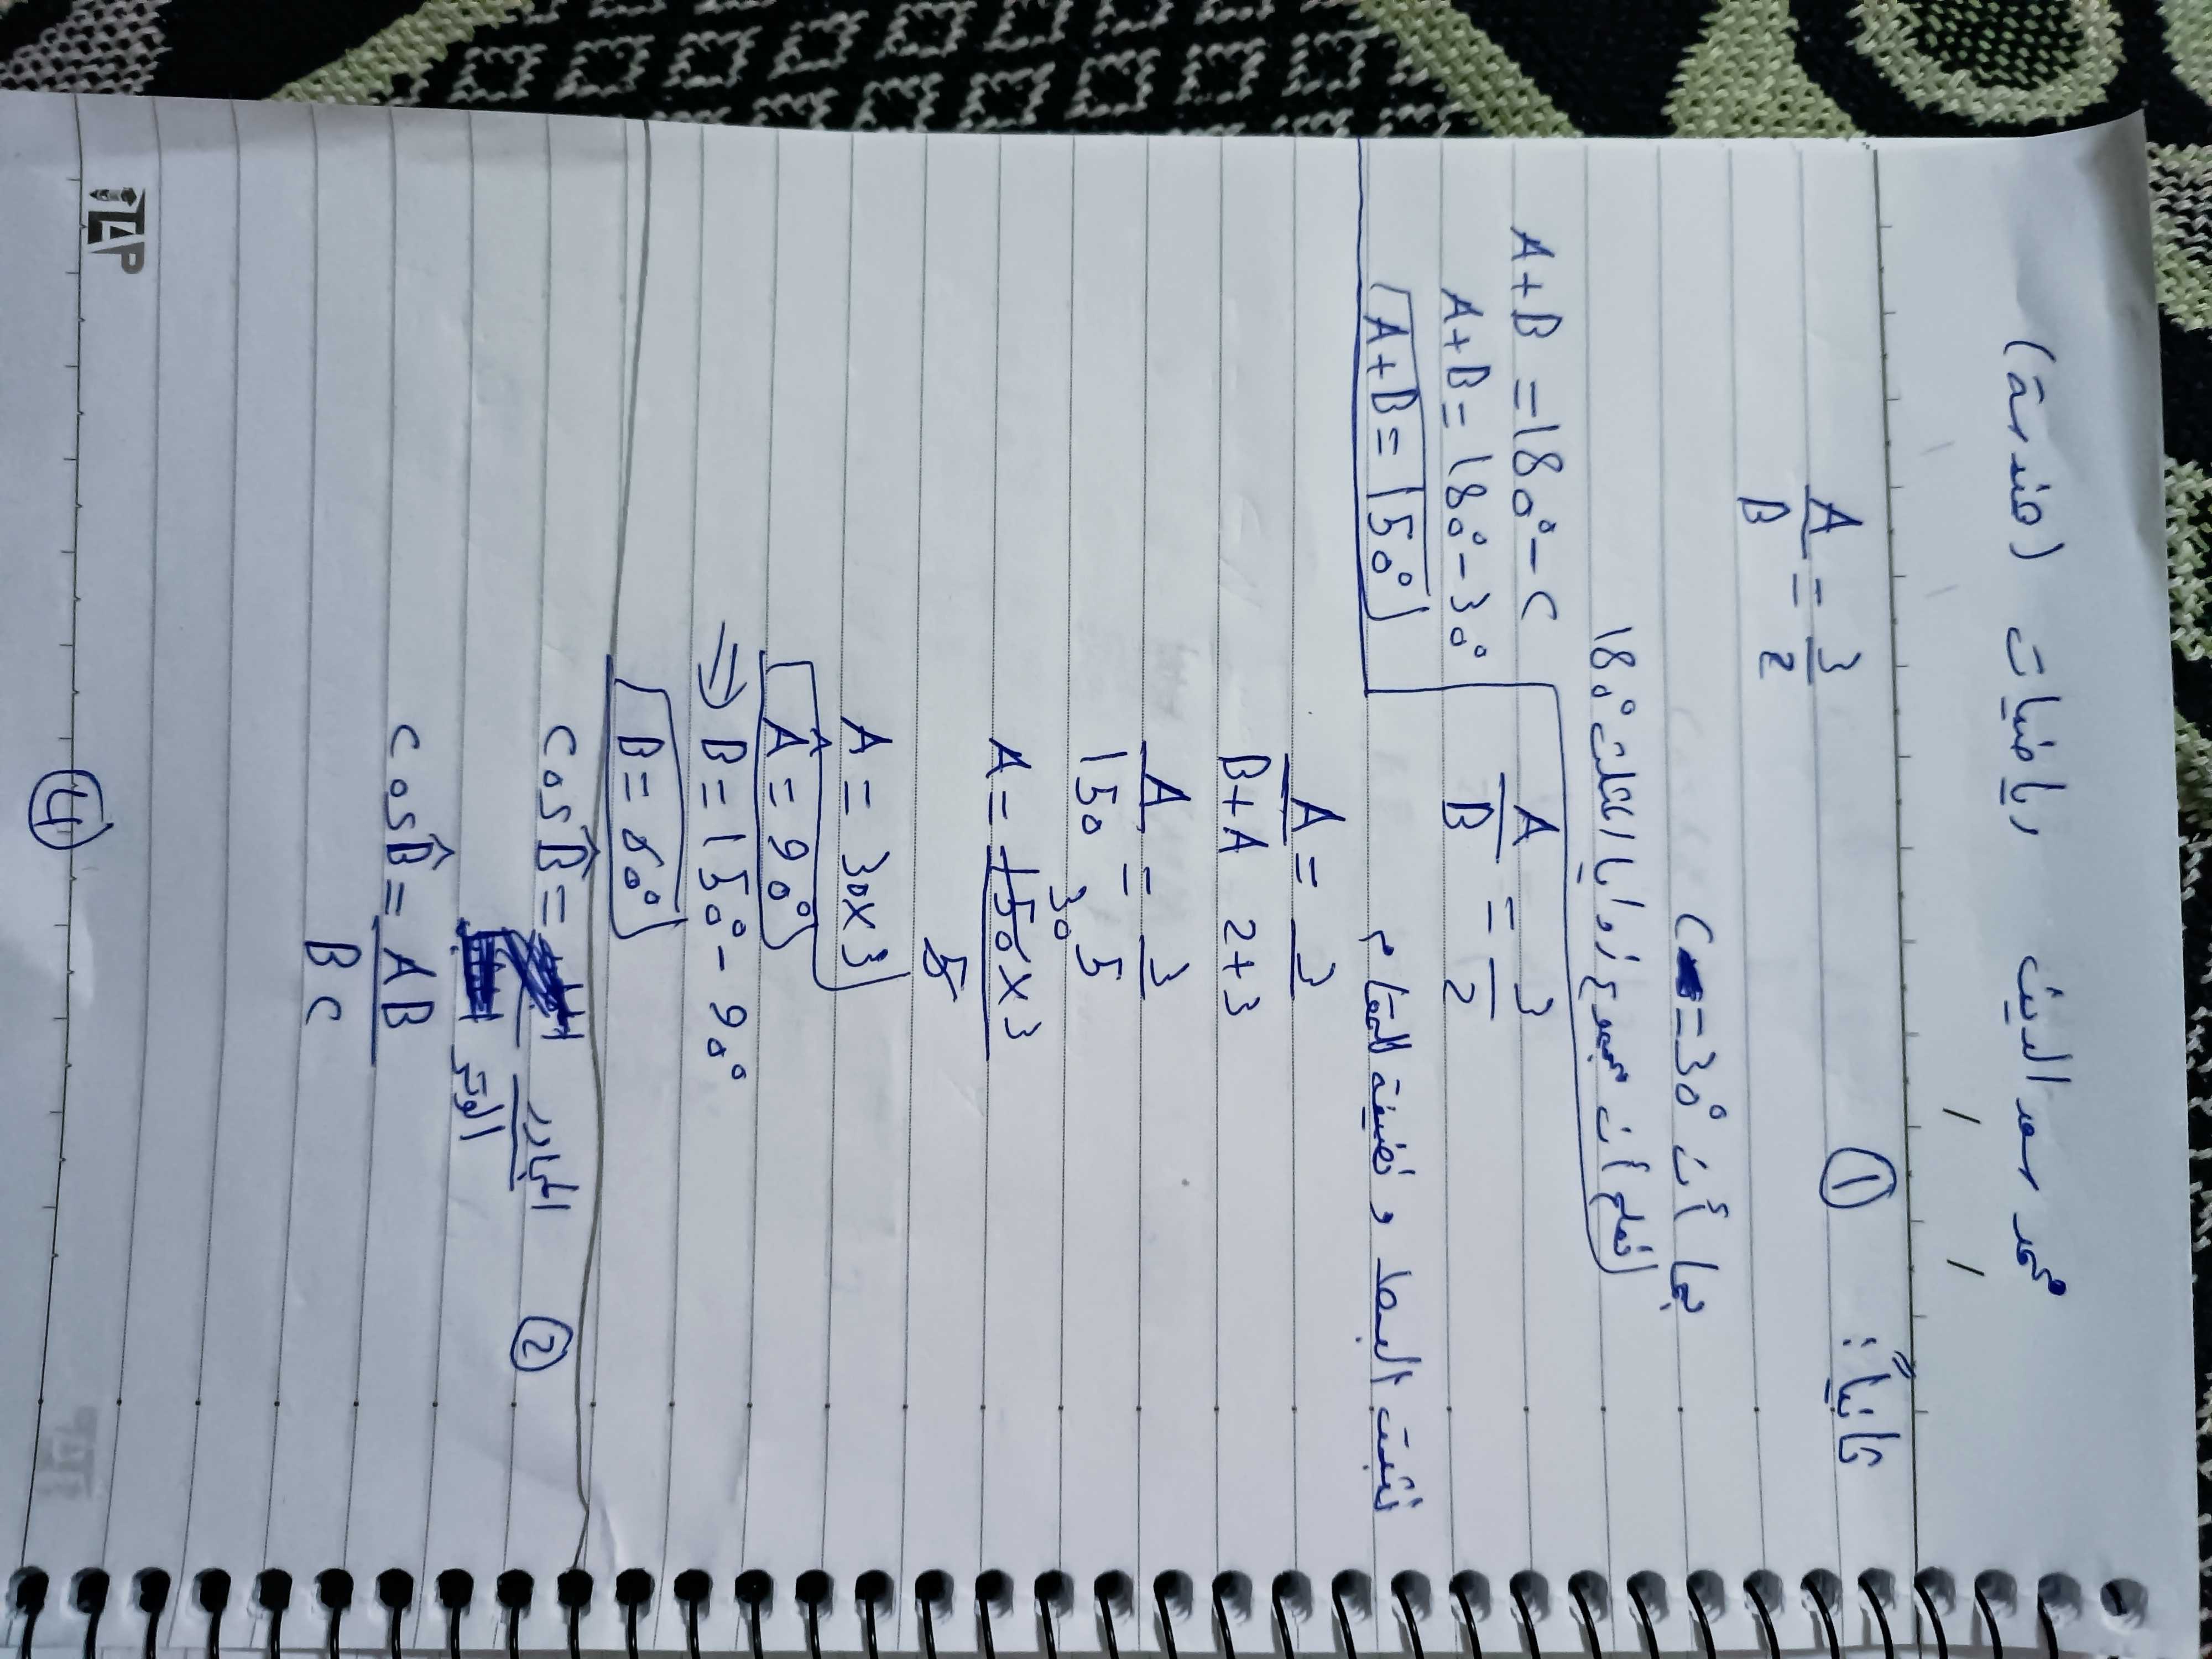 محمد سعد الدين رياضيات (هندسة)
/ /
ثانياً: ①
A/B = 3/2
بما أن C = 30°
نعلم أن مجموع زوايا المثلث 180°
A+B = 180° - C
A+B = 180° - 30°
A+B = 150°
A/B = 3/2
نثبت البسط و نضيفه للمقام
A/B+A = 3/2+3
A/150 = 3/5
A = 150×3/5
30
A = 30×3
Â = 90°
⇒ B = 150° - 90°
B = 60°
② cos B̂ = المجاور/الوتر
cos B̂ = AB/BC
④
iTAP